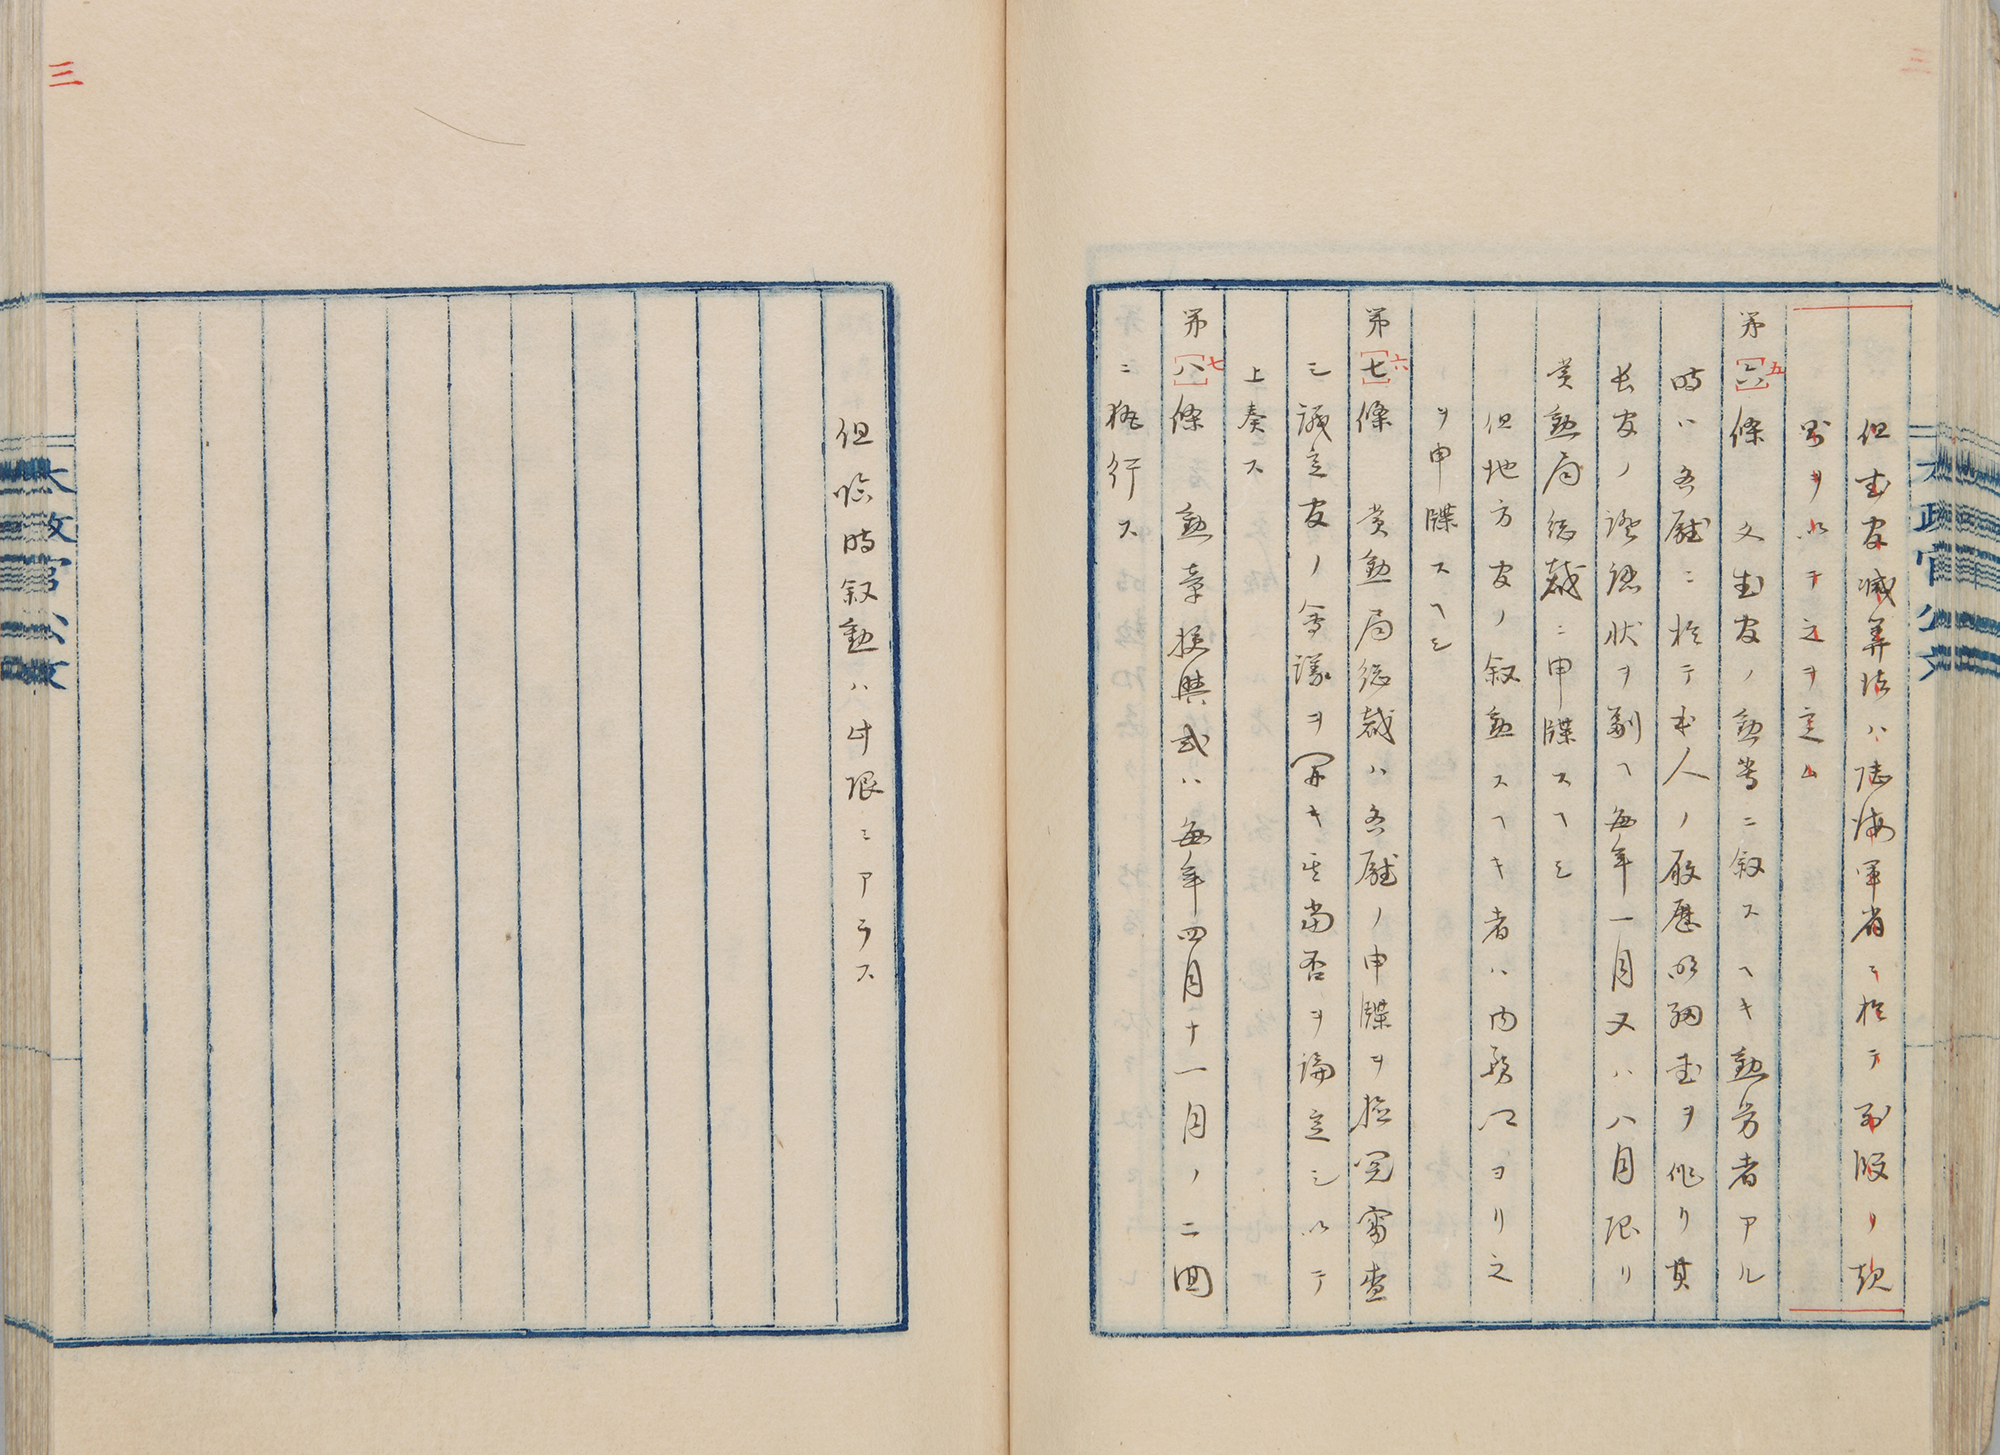 三
但武官減算法ハ陸海軍省ニ於テ別段ノ規
則ヲ以テ之ヲ定ム
第[六]五條 文武官ノ勲等ニ叙スヘキ勲労者アル
時ハ各廳ニ於テ本人ノ履歴明細書ヲ作リ其
長官ノ證認状ヲ副ヘ毎年一月又ハ八月限リ
賞勲局総裁ニ申牒スヘシ
但地方官ノ叙勲スヘキ者ハ内務卿ヨリ之
ヲ申牒スヘシ
第[七]六條 賞勲局総裁ハ各廳ノ申牒ヲ検閲審査
シ議定官ノ会議ヲ開キ其当否ヲ論定シ以テ
上奏ス
第[八]七條 勲章授與式ハ毎年四月十一月ノ二回
ニ施行ス
太政官公文
三
但臨時叙勲ハ此限ニアラス
太政官公文